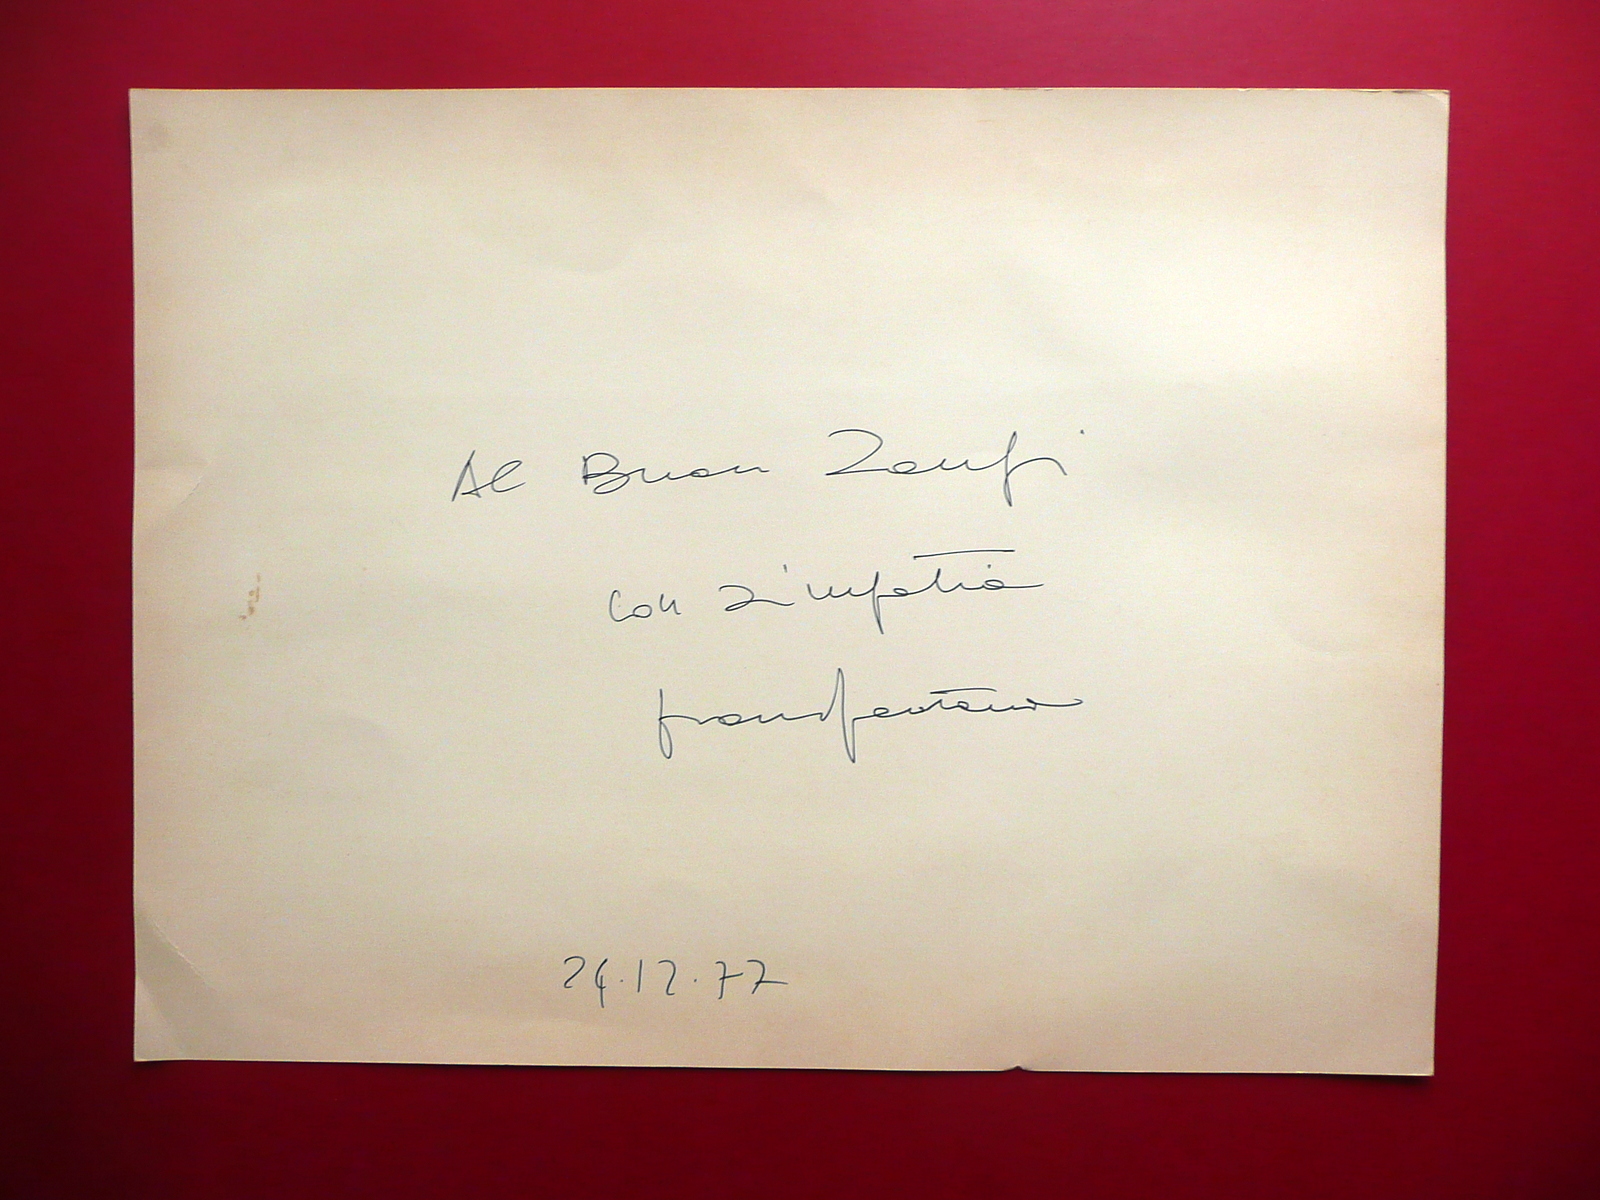 Al Buon Zanfi
con simpatia
franco fontana
24.12.77